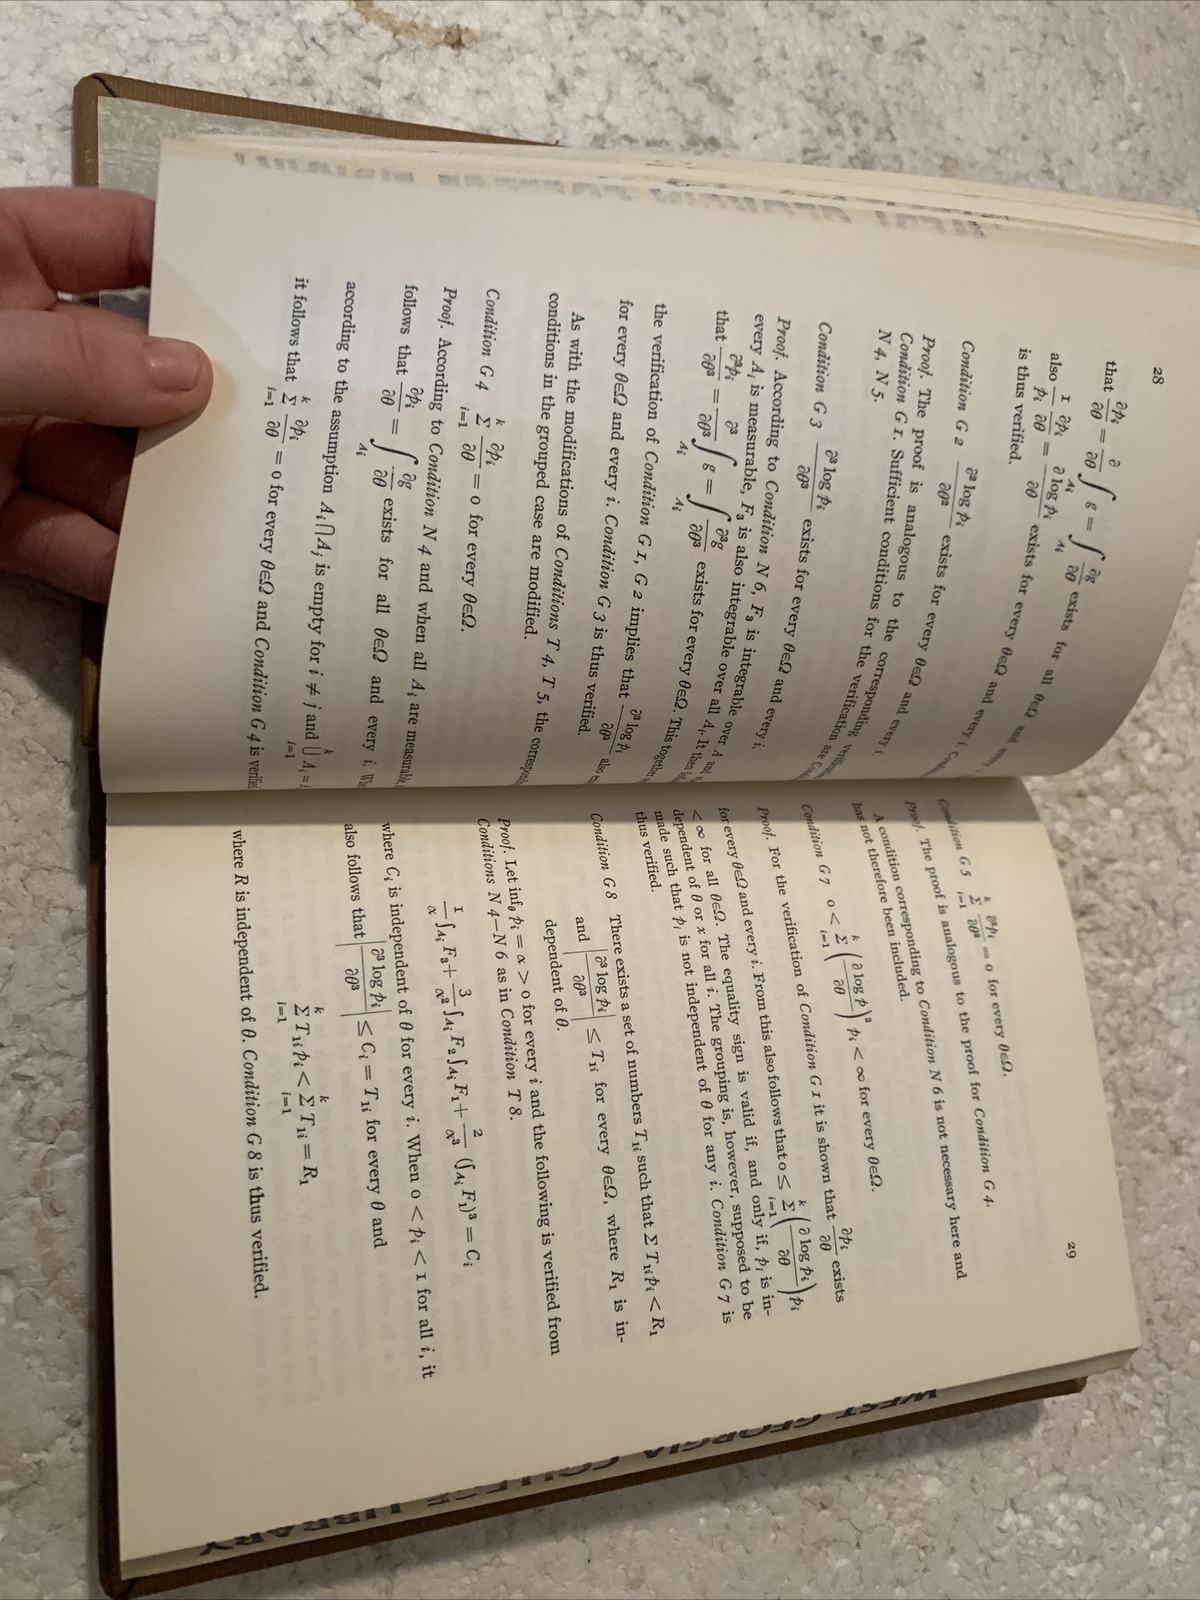 28
that ∂pᵢ/∂θ = ∂/∂θ ∫_{Aᵢ} g = ∫_{Aᵢ} ∂g/∂θ exists for all θ∈Ω and every
also 1/pᵢ ∂pᵢ/∂θ = ∂ log pᵢ/∂θ exists for every θ∈Ω and every i.
is thus verified.
Condition G 2 ∂² log pᵢ/∂θ² exists for every θ∈Ω and every i.
Proof. The proof is analogous to the corresponding
Condition G 1. Sufficient conditions for the verification are
N 4, N 5.
Condition G 3 ∂³ log pᵢ/∂θ³ exists for every θ∈Ω and every i.
Proof. According to Condition N 6, F₃ is integrable over A and
every Aᵢ is measurable, F₃ is also integrable over all Aᵢ. It then
that ∂³pᵢ/∂θ³ = ∂³/∂θ³ ∫_{Aᵢ} g = ∫_{Aᵢ} ∂³g/∂θ³ exists for every θ∈Ω. This together
the verification of Condition G 1, G 2 implies that ∂³ log pᵢ/∂θ³ also
for every θ∈Ω and every i. Condition G 3 is thus verified.
As with the modifications of Conditions T 4, T 5, the
conditions in the grouped case are modified.
Condition G 4 Σ_{i=1}^{k} ∂pᵢ/∂θ = 0 for every θ∈Ω.
Proof. According to Condition N 4 and when all Aᵢ are
follows that ∂pᵢ/∂θ = ∫_{Aᵢ} ∂g/∂θ exists for all θ∈Ω and every i.
according to the assumption Aᵢ ⋂ Aⱼ is empty for i ≠ j and ⋃_{i=1}^{k} Aᵢ =
it follows that Σ_{i=1}^{k} ∂pᵢ/∂θ = 0 for every θ∈Ω and Condition G 4 is
29
Condition G 5 Σ_{i=1}^{k} ∂²pᵢ/∂θ² = 0 for every θ∈Ω.
Proof. The proof is analogous to the proof for Condition G 4.
A condition corresponding to Condition N 6 is not necessary here and
has not therefore been included.
Condition G 7 0 < Σ_{i=1}^{k} (∂ log p/∂θ)² pᵢ < ∞ for every θ∈Ω.
Proof. For the verification of Condition G 1 it is shown that ∂pᵢ/∂θ exists
for every θ∈Ω and every i. From this also follows that 0 ≤ Σ_{i=1}^{k} (∂ log pᵢ/∂θ) pᵢ
< ∞ for all θ∈Ω. The equality sign is valid if, and only if, pᵢ is in-
dependent of θ or x for all i. The grouping is, however, supposed to be
made such that pᵢ is not independent of θ for any i. Condition G 7 is
thus verified.
Condition G 8 There exists a set of numbers T₁ᵢ such that Σ T₁ᵢ pᵢ < R₁
and |∂³ log pᵢ/∂θ³| ≤ T₁ᵢ for every θ∈Ω, where R₁ is in-
dependent of θ.
Proof. Let inf_θ pᵢ = α > 0 for every i and the following is verified from
Conditions N 4–N 6 as in Condition T 8.
1/α ∫_{Aᵢ} F₃ + 3/α² ∫_{Aᵢ} F₂ ∫_{Aᵢ} F₁ + 2/α³ (∫_{Aᵢ} F₁)³ = Cᵢ
where Cᵢ is independent of θ for every i. When 0 < pᵢ < 1 for all i, it
also follows that |∂³ log pᵢ/∂θ³| ≤ Cᵢ = T₁ᵢ for every θ and
Σ_{i=1}^{k} T₁ᵢ pᵢ < Σ_{i=1}^{k} T₁ᵢ = R₁
where R is independent of θ. Condition G 8 is thus verified.
WEST GEORGIA COLLEGE LIBRARY